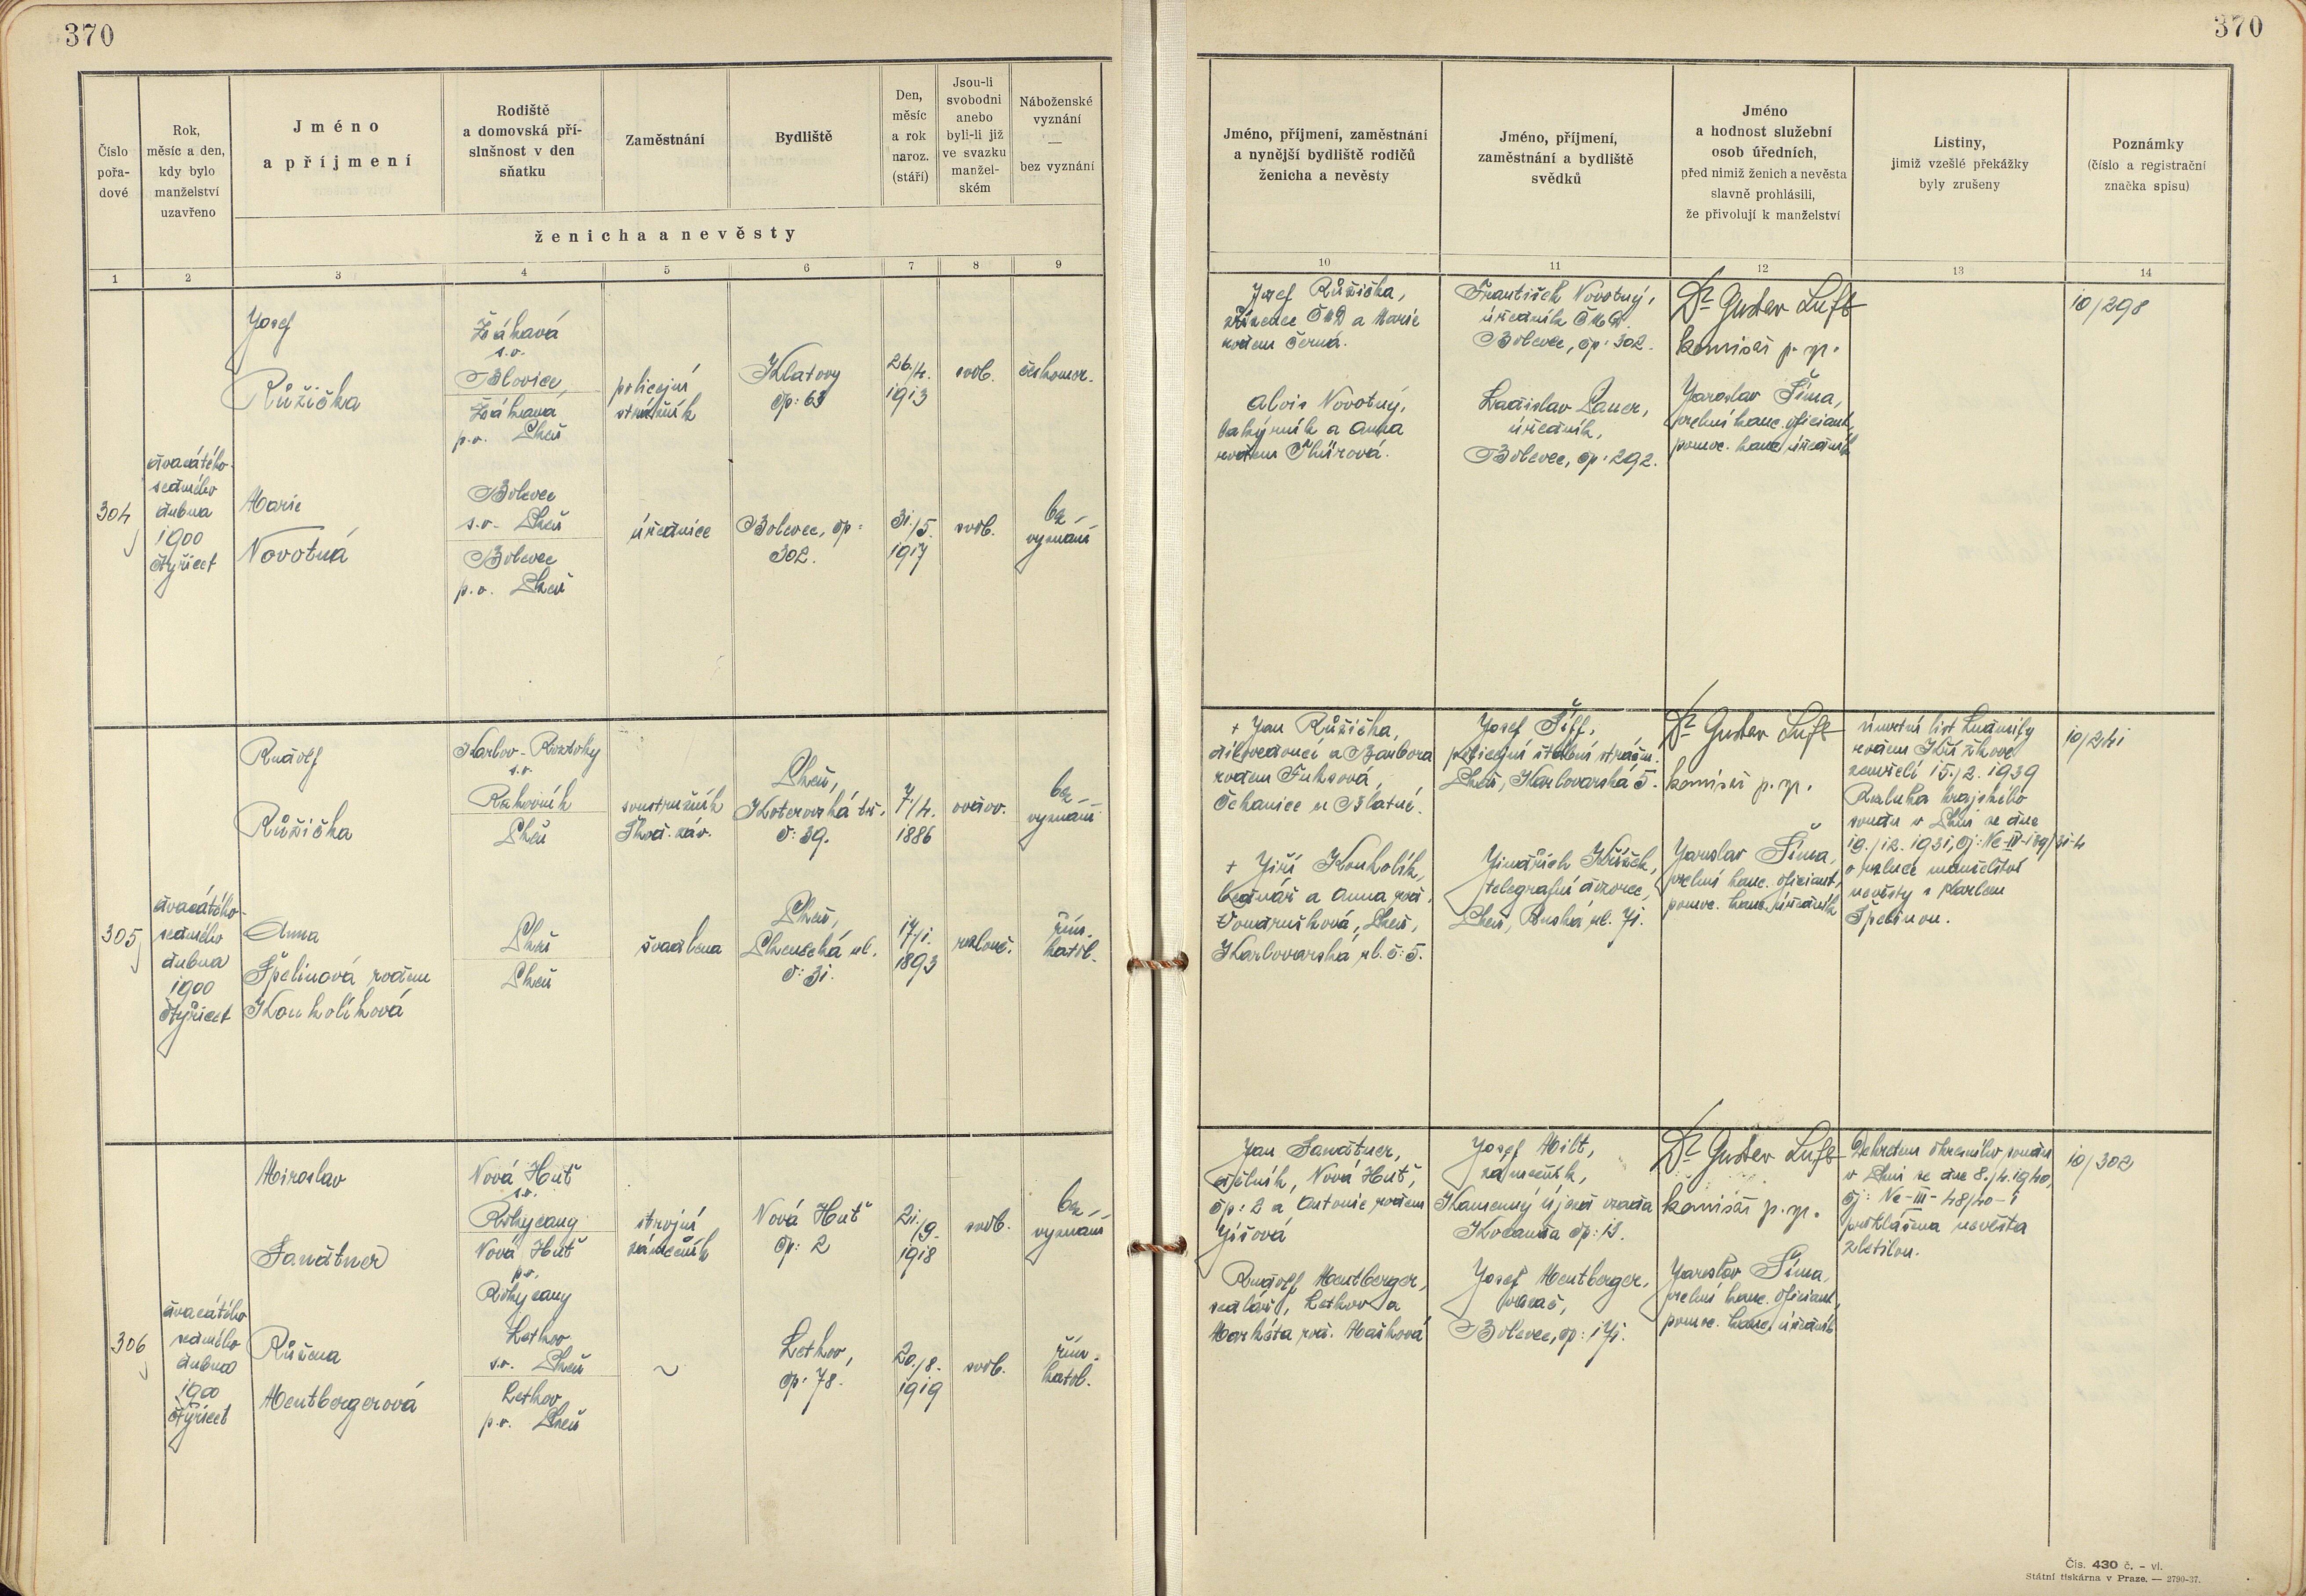 370
370
Číslo
pořa-
dové
Rok,
měsíc a den,
kdy bylo
manželství
uzavřeno
Jméno
a příjmení
Rodiště
a domovská pří-
slušnost v den
sňatku
Zaměstnání
Bydliště
Den,
měsíc
a rok
naroz.
(stáří)
Jsou-li
svobodni
anebo
byli-li již
ve svazku
manžel-
ském
Náboženské
vyznání
—
bez vyznání
ženicha a nevěsty
Jméno, příjmení, zaměstnání
a nynější bydliště rodičů
ženicha a nevěsty
Jméno, příjmení,
zaměstnání a bydliště
svědků
Jméno
a hodnost služební
osob úředních,
před nimiž ženich a nevěsta
slavně prohlásili,
že přivolují k manželství
Listiny,
jimiž vzešlé překážky
byly zrušeny
Poznámky
(číslo a registrační
značka spisu)
1 2 3 4 5 6 7 8 9 10 11 12 13 14
304
dvacátého
sedmého
dubna
1900
čtyřicet
Josef
Růžička
Žákavá
s.o.
Blovice,
Žákava
p.o. Plzeň
policejní
strážník
Klatovy
čp: 63
26/4.
1913
svob.
českomor.
Marie
Novotná
Bolevec
s.o. Plzeň
Bolevec
p.o. Plzeň
úřednice
Bolevec, čp:
302.
31./5.
1917
svob.
bez
vyznání
Josef Růžička,
zřízenec ČMD a Marie
rodem Černá.
Alois Novotný,
lakýrník a Anna
rodem
František Novotný,
úředník ČMD.
Bolevec, čp: 302.
Ladislav Lauer,
úředník,
Bolevec, čp: 292.
Dr Gustav Luft
komisař p. sp.
Jaroslav Šíma,
kanc. oficiant,
pomoc. kanc. úředník
10/298
305
dvacátého
sedmého
dubna
1900
čtyřicet
Rudolf
Růžička
Karlov-Roztoky
s.o.
Rakovník
Plzeň
soustružník
Škod. záv.
Plzeň,
Koterovská tř.
č: 39.
7/4.
1886
ovdov.
bez
vyznání
Anna
Špelinová rodem
Kouholíková
Plzeň
Plzeň
švadlena
Plzeň,
Plzenecká ul.
č: 31.
17/1.
1893
rozlouč.
řím.
katol.
+ Jan Růžička,
dílovedoucí a Barbora
rodem Fuksová,
Čekanice u Blatné.
+ Jiří Kouholík,
bednář a Anna roz.
Vondrušková, Plzeň,
Karlovarská ul. č: 5.
Josef Šiff,
policejní štábní strážm.
Plzeň, Karlovarská 5.
Jindřich Křížek,
telegrafní dozorce,
Plzeň, Ruská ul. 71.
Dr Gustav Luft
komisař p. sp.
Jaroslav Šíma,
kanc. oficiant,
pomoc. kanc. úředník
Úmrtní list Ludmily
rodem Křížkové
zemřelé 15./2. 1939
Rozluka krajského
soudu v Plzni ze dne
19./12. 1931, čj: Nc-III-189/31-4
o rozluce manželství
nevěsty s Karlem
Špelinou.
10/241
306
dvacátého
sedmého
dubna
1900
čtyřicet
Miroslav
Sandtner
Nová Huť
s.o.
Rokycany
Nová Huť
p.o.
Rokycany
strojní
zámečník
Nová Huť
čp: 2
21./9.
1918
svob.
bez
vyznání
Růžena
Mentbergerová
Letkov
s.o. Plzeň
Letkov
p.o. Plzeň
~
Letkov,
čp: 78.
20./8.
1919
svob.
řím.
katol.
Jan Sandtner,
dělník, Nová Huť,
čp: 2 a Antonie rodem
Jíšová
Rudolf Mentberger,
sedlář, Letkov a
Markéta roz. Mašková
Josef Milt,
zámečník,
Kamenný Újezd osada
Kocanda čp: 13.
Josef Mentberger,
Bolevec, čp: 171.
Dr Gustav Luft
komisař p. sp.
Jaroslav Šíma,
kanc. oficiant,
pomoc. kanc. úředník
Dekretem okresního soudu
v Plzni ze dne 8./4. 1940,
čj: Nc-III-48/40-1
prohlášena nevěsta
zletilou.
10/302
Čís. 430 č. - vl.
Státní tiskárna v Praze. — 2790-37.